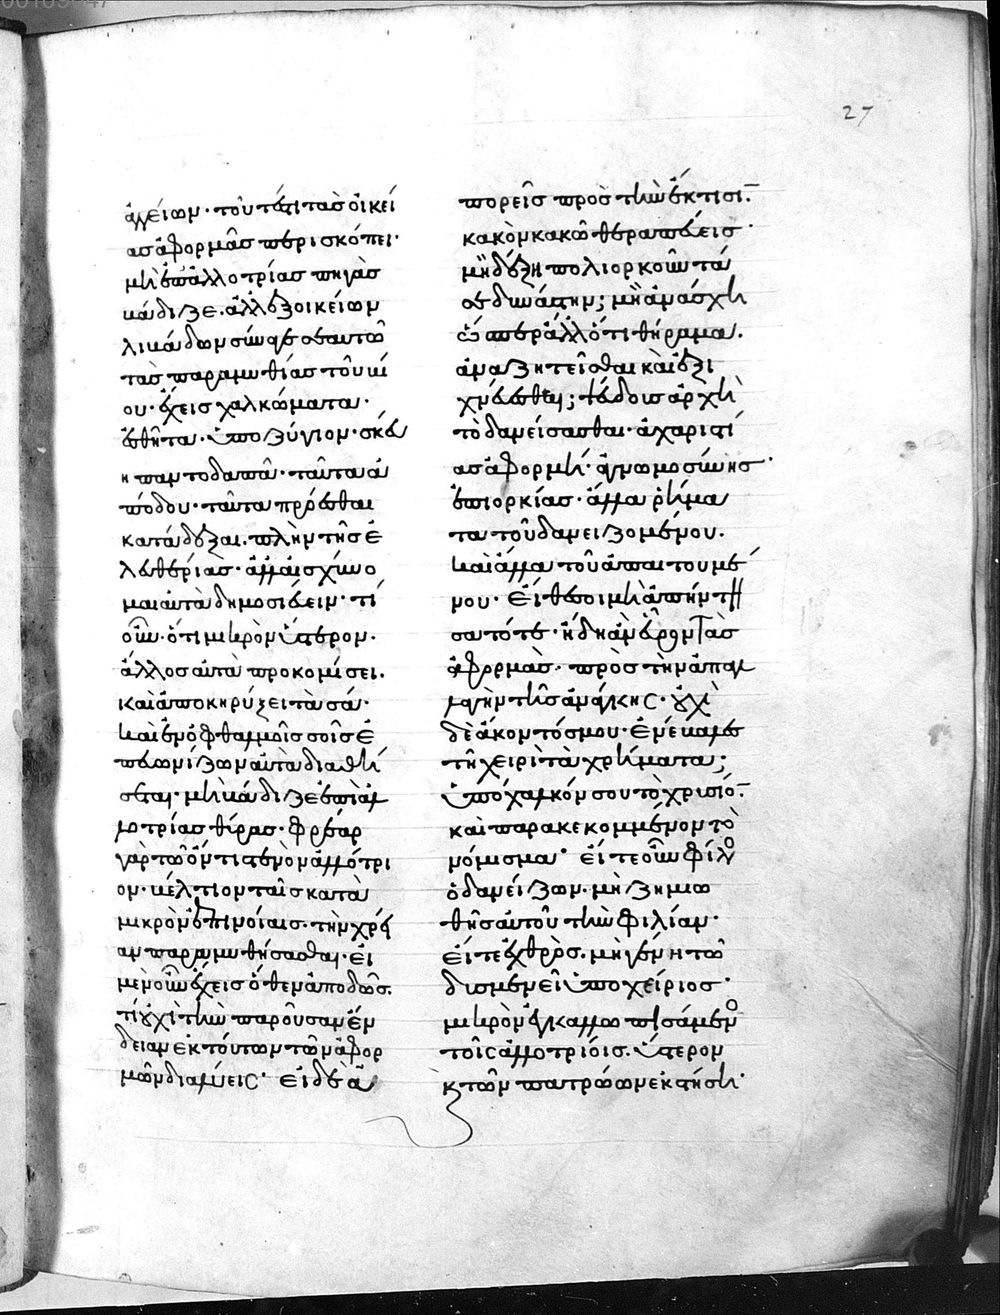 27
ἀγγείων· τουτέστι τὰς οἰκεί
ας ἀφορμὰς περισκόπει·
μὴ ἐπ' ἀλλοτρίας πηγὰς
βάδιζε. ἀλλ' ἐξ οἰκείων
λιβάδων σύναγε σεαυτῶ
τὰς παραμυθίας τοῦ βί
ου· ἔχεις χαλκώματα·
ἐσθῆτα· ὑποζύγιον· σκεύ
η παντοδαπά· ταῦτα ἀ
πόδου· ταῦτα πρόεσθαι
κατάδεξαι. πλὴν τῆς ἐ
λευθερίας· ἀλλ' αἰσχύνο
μαι αὐτὰ δημοσιεύειν· τί
οὖν· ὅτι μικρὸν ὕστερον.
ἄλλος αὐτὰ προκομίσει.
καὶ ἀποκηρύξει τὰ σά·
καὶ ἐν ὀφθαλμοῖς σοῖς ἐ
πευωνίζων αὐτὰ διαθή
σεται· μὴ βάδιζε ἐπὶ ἀλ
λοτρίας θύρας· φρέαρ
γὰρ τῶ ὄντι στενὸν ἀλλότρι
ον· βέλτιον ταῖς κατὰ
μικρὸν ἐπινοίαις. τὴν χρεί
αν παραμυθήσασθαι· εἰ
μὲν οὖν ἔχεις ὅθεν ἀποδῶς.
τί οὐχὶ τὴν παροῦσαν ἔν
δειαν ἐκ τούτων τῶν ἀφορ
μῶν διαλύεις· εἰ δὲ ἀ
πορεῖς πρὸς τὴν ἔκτισιν.
κακὸν κακῶ θεραπεύεις·
μὴ δέξη πολιορκοῦντά
σε δυνάστην; μὴ ἀνάσχη
ὥσπερ ἄλλό τι θήραμα.
ἀναζητεῖσθαι καὶ ἐξι
χνεύεσθαι; ψεύδους ἀρχὴ
τὸ δανείσασθαι· ἀχαριστί
ας ἀφορμή· ἀγνωμοσύνης·
ἐπιορκίας· ἄλλα ῥήμα
τα τοῦ δανειζομένου.
καὶ ἄλλα τοῦ ἀπαιτουμέ
νου· εἴθε σοι μὴ ἀπήντη
σα τότε· ἤδη ἂν εὗρον τὰς
ἀφορμὰς· πρὸς τὴν ἀπαλ
λαγὴν τῆς ἀνάγκης· οὐχὶ
δὲ ἄκοντός μου· ἐνέβαλες
τῆ χειρὶ τὰ χρήματα;
ὑπόχαλκόν σου τὸ χρυσίον·
καὶ παρακεκομμένον τὸ
νόμισμα· εἴτε οὖν φίλος
ὁ δανείζων. μὴ ζημιω
θῆς αὐτοῦ τὴν φιλίαν·
εἴτε ἐχθρὸς. μὴ γένη τῶ
δυσμενεῖ ὑποχείριος·
μικρὸν ἐγκαλλωπισάμενος
τοῖς ἀλλοτρίοις. ὕστερον
κ τῶν πατρώων ἐκστήση·